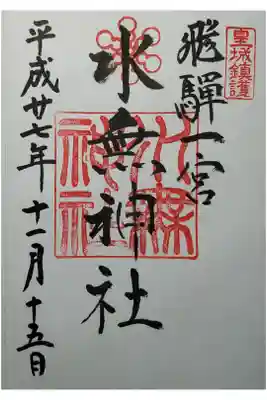 皇城鎮護
飛騨一宮
水無神社
水無神社
平成廿七年十一月十五日